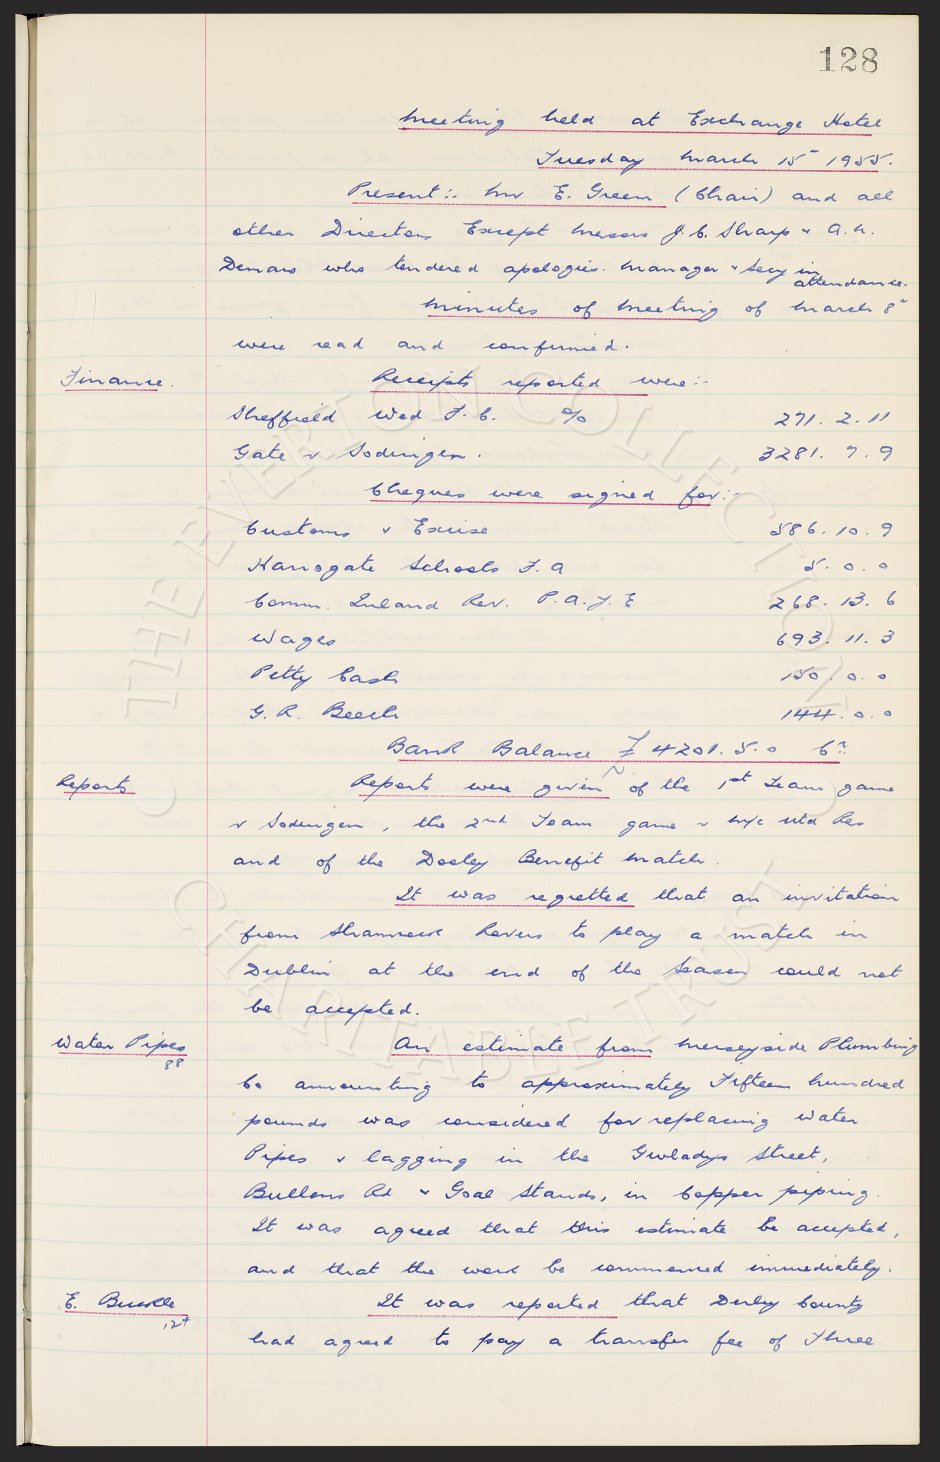 128
Meeting held at Exchange Hotel
Tuesday March 15" 1955.
Present:- Mr E. Green (Chair) and all
other Directors Except Messrs J. C. Sharp & A. N.
Denaro who tendered apologies. Manager & Secy in
attendance.
Minutes of Meeting of March 8"
were read and confirmed.
Finance. Receipts reported were:-
Sheffield Wed F. C. % 271. 2. 11
Gate v Sodingen. 3281. 7. 9
Cheques were signed for:-
Customs & Excise 586. 10. 9
Harrogate Schools F. A 5. 0. 0
Comm. Inland Rev. P. A. Y. E 268. 13. 6
Wages 693. 11. 3
Petty Cash 150. 0. 0
G. R. Beech 144. 0. 0
Bank Balance £4201. 5. 0 Cr.
Reports Reports were given of the 1st Team game
v Sodingen, the 2nd Team game v M/c Utd Res
and of the Dooley Benefit Match.
It was regretted that an invitation
from Shamrock Rovers to play a match in
Dublin at the end of the Season could not
be accepted.
Water Pipes An estimate from Merseyside Plumbing
88
Co amounting to approximately Fifteen hundred
pounds was considered for replacing water
Pipes & lagging in the Gwladys Street,
Bullens Rd & Goal Stands, in Copper piping.
It was agreed that this estimate be accepted,
and that the work be commenced immediately.
E. Buckle It was reported that Derby County
127
had agreed to pay a transfer fee of Three
© THE EVERTON COLLECTION
© CHARITABLE TRUST